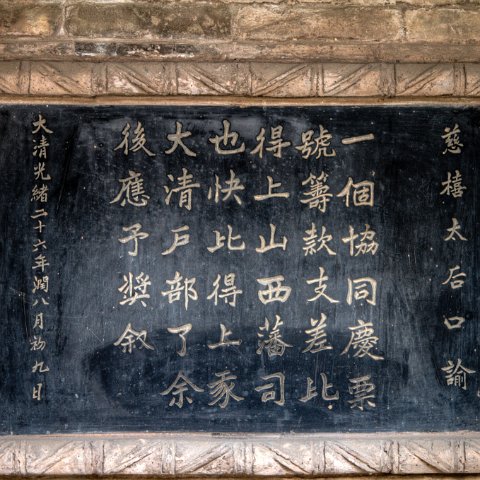 慈禧太后口諭
一個協同慶票
號籌款支差比
得上山西藩司
也快比得上豖
大清戶部了余
後應予獎叙
大清光緒二十六年閏八月初九日